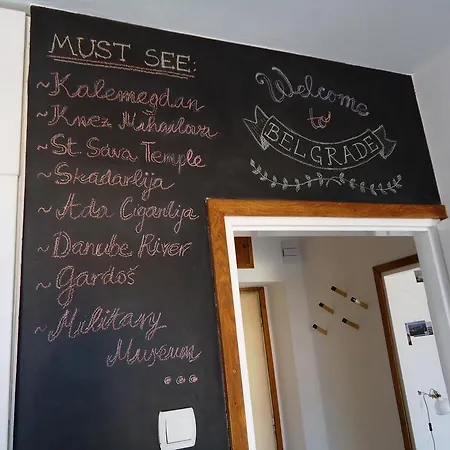 MUST SEE:
~ Kalemegdan
~ Knez Mihailova
~ St. Sava Temple
~ Skadarlija
~ Ada Ciganlija
~ Danube River
~ Gardoš
~ Military
Museum
...
Welcome
to
BELGRADE